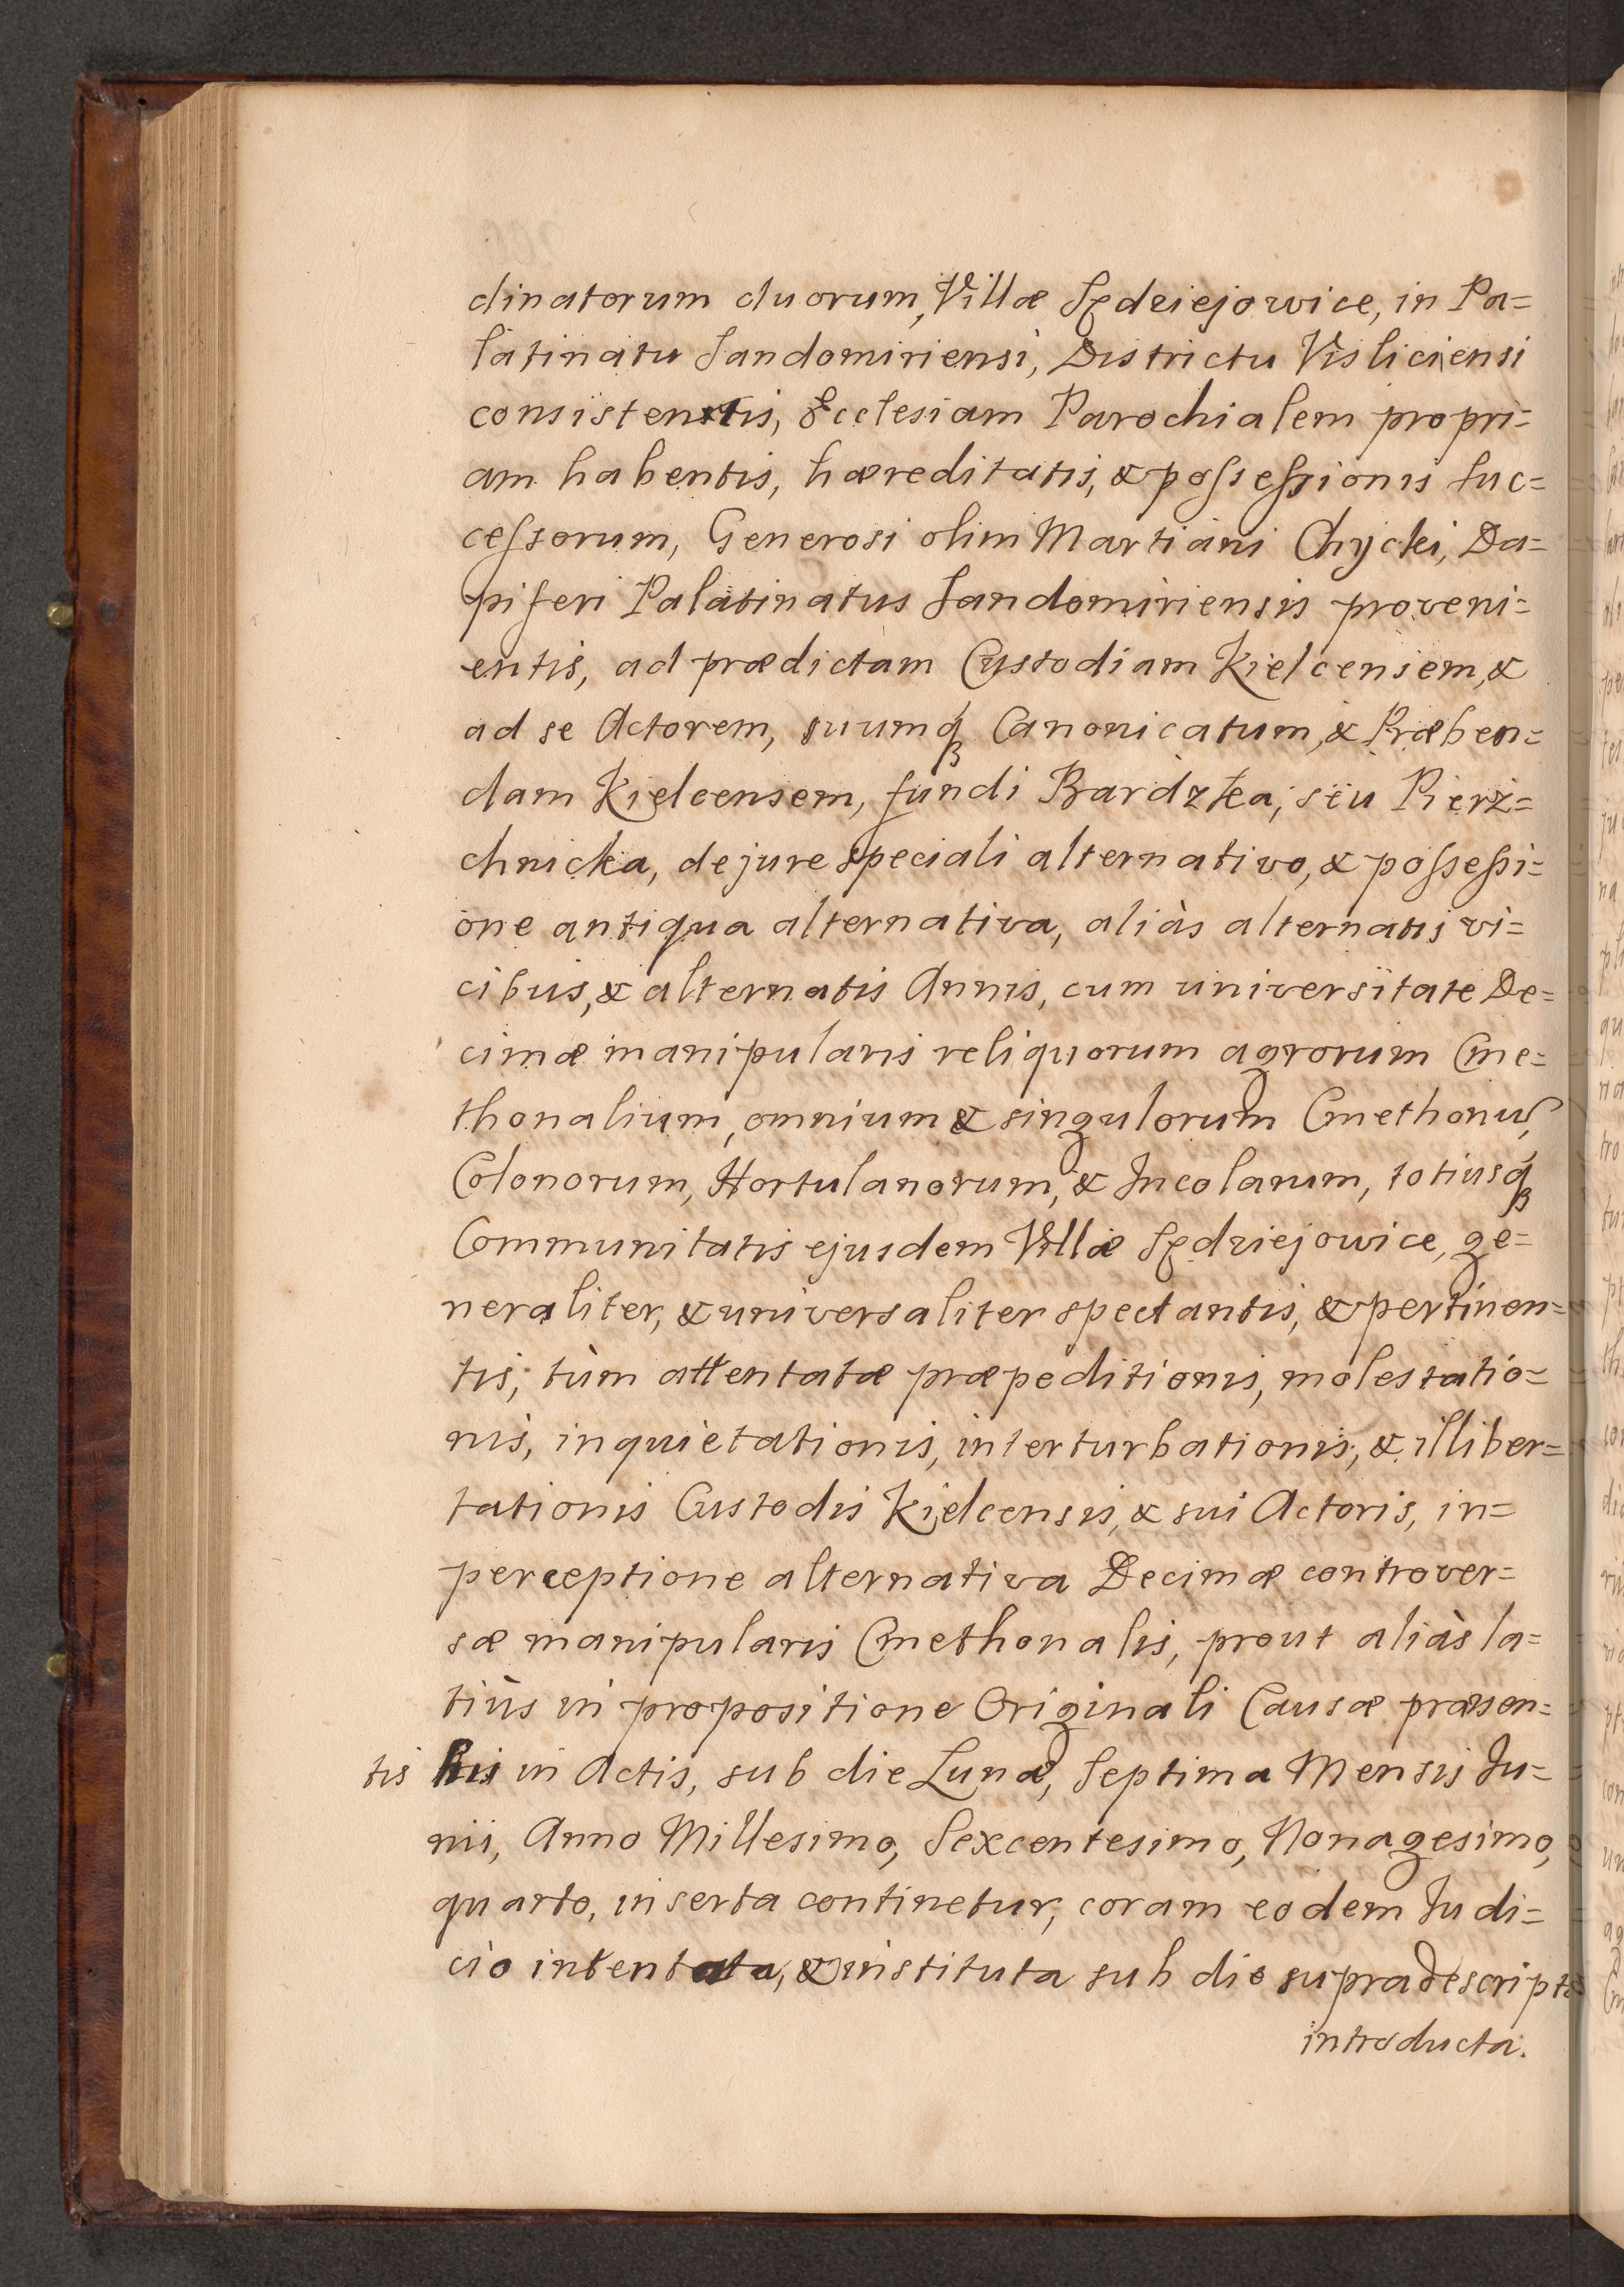 dinatorum duorum, Villæ Sędziejowice, in Pa=
latinatu Sandomiriensi, Districtu Visliciensi
consistentis, Ecclesiam Parochialem propri=
am habentis, hæreditatis, & possessionis suc=
cessorum, Generosi olim Martiani Chycki, Da=
piferi Palatinatus Sandomiriensis proveni=
entis, ad prædictam Custodiam Kielcensem, &
ad se Actorem, suumq́ꝫ Canonicatum, & Præben=
dam Kielcensem, fundi Bardzka, seu Pierz=
chnicka, de jure speciali alternativo, & possessi=
one antiqua alternativa, aliàs alternatis vi=
cibus, & alternatis Annis, cum universitate De=
cimæ manipularis reliquorum agrorum Cme=
thonalium, omnium & singulorum Cmethonū,
Colonorum, Hortulanorum, & Incolarum, totiusq́ꝫ
Communitatis ejusdem Villæ Sędziejowice, ge=
neraliter, & universaliter spectantis, & pertinen=
tis, tùm attentatæ præpeditionis, molestatio=
nis, inquietationis, interturbationis, & illiber=
tationis Custodis Kielcensis, & sui Actoris, in=
perceptione alternativa Decimæ controver=
sæ manipularis Cmethonalis, prout aliàs la=
tiùs in propositione Originali Causæ præsen=
tis in Actis, sub die Lunæ, Septima Mensis Ju=
nii, Anno Millesimo, Sexcentesimo, Nonagesimo,
quarto, inserta continetur, coram eodem Judi=
cio intentata, & instituta sub die supradescripta
introducta.